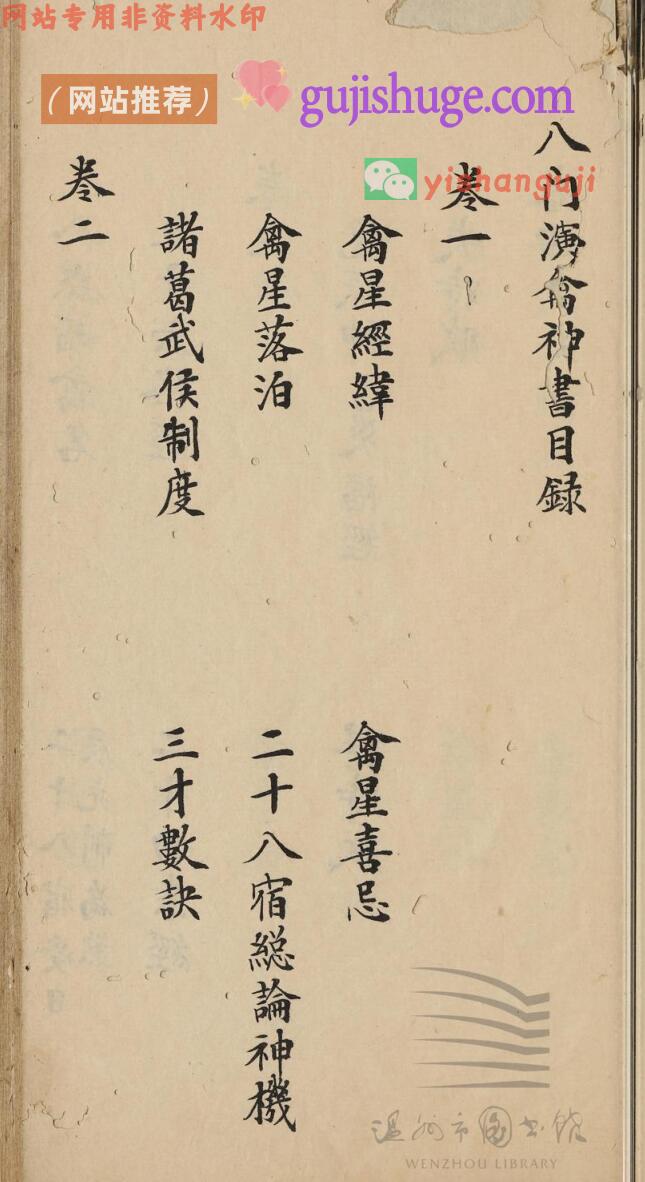 网站专用非资料水印
（网站推荐）
gujishuge.com
yishanguji
八門演禽神書目録
卷一
禽星經緯
禽星喜忌
禽星落泊
二十八宿総論神機
諸葛武侯制度
三才數訣
卷二
温州市图书馆
WENZHOU LIBRARY